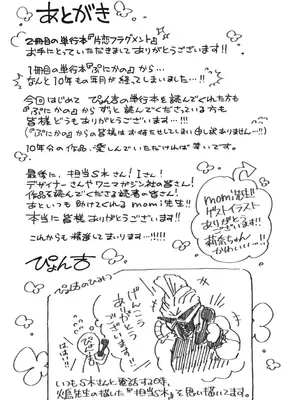 あとがき
2冊目の単行本『片恋フラグメント』
お手にとっていただきまして
ありがとうございます!!
1冊目の単行本『ぷにかの』から…
なんと10年もの月日が経ってしまいました…!!
今回はじめて ぴょん吉の単行本を読んでくれた方も
『ぷにかの』から ずっと読んでくださっている方も
皆様どうもありがとうございます…!!!
(『ぷにかの』からの皆様はお待たせしてしまい申し訳ありません…!!)
10年分の作品、楽しんでいただければ幸いです。
最後に、担当S木さん! Iさん!
デザイナーさんやワニマガジン社の皆さん!
作品を読んでくださる読者の皆さん!
あといつも助けてくれるmomi先生!!
本当に皆様ありがとうございます!!
これからも精進してまいります…!!!!
ぴょん吉
momi先生!!
ゲストイラスト
ありがとう
ございます!!
莉奈ちゃん
かわいい…!!
ぴょん吉のひみつ
げんこう
ありがとう
ございます
ぴょん吉
はい…!!
いつもS木さんと電話する時、
先生の描いた『担当S木』を思い描いてます。